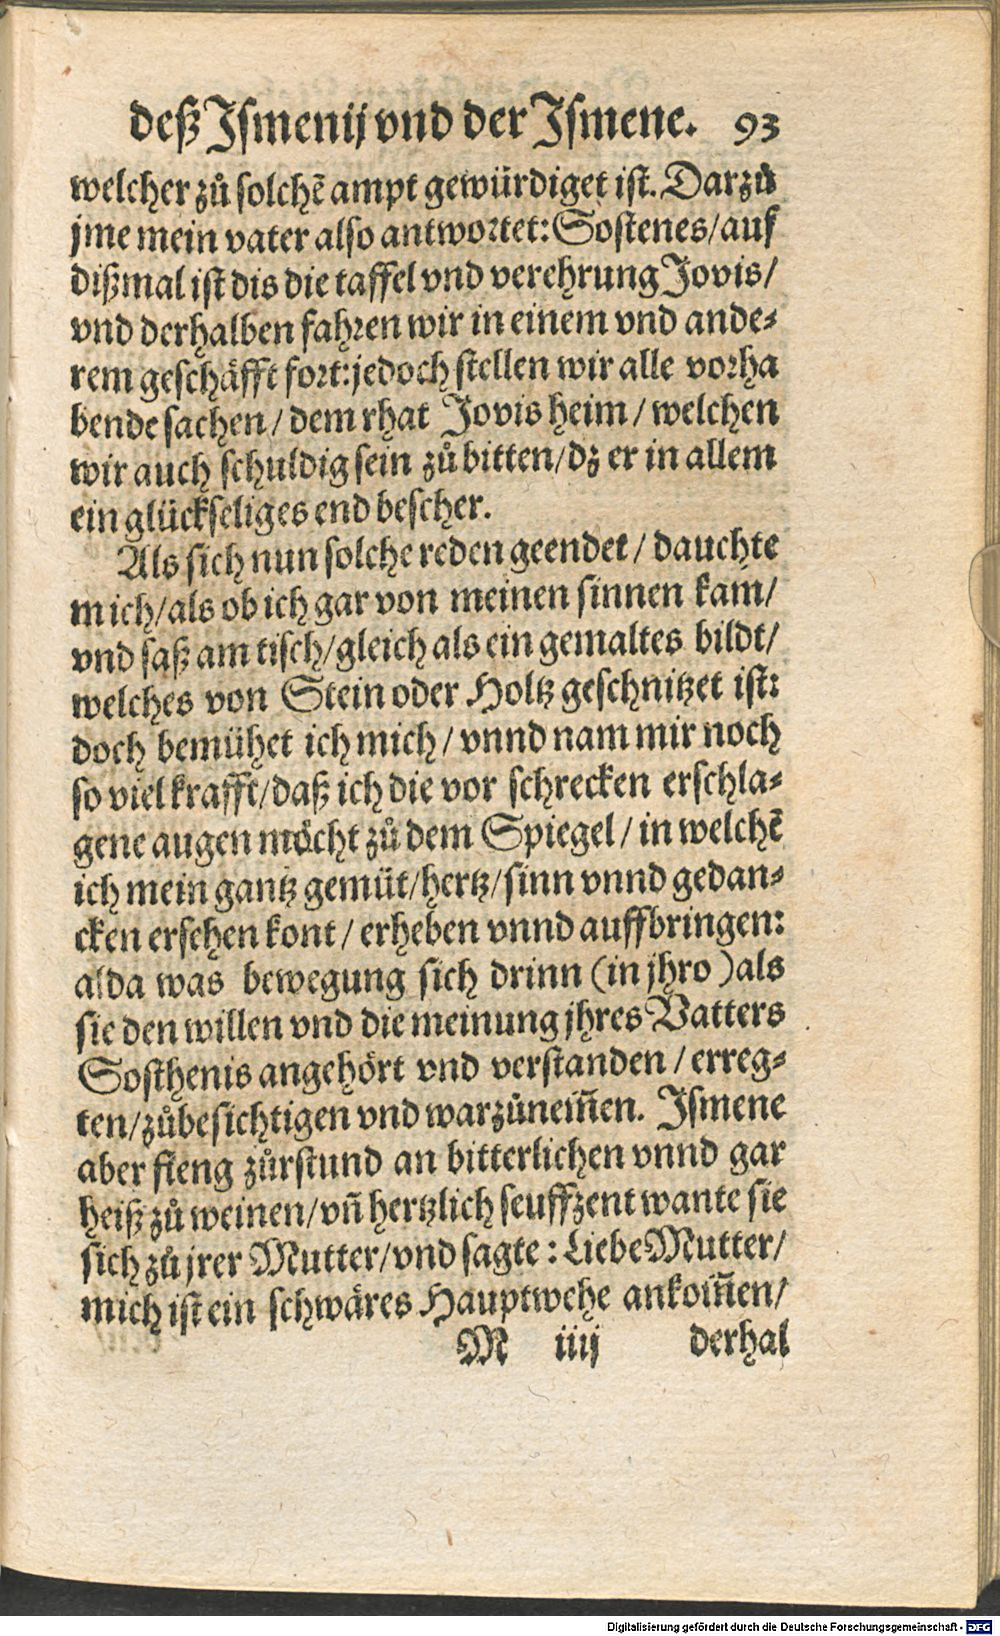 deß Ismenij vnd der Ismene. 93
welcher zů solchē ampt gewürdiget ist. Darzů
jme mein vater also antwortet: Sostenes/auf
dißmal ist dis die taffel vnd verehrung Jovis/
vnd derhalben fahren wir in einem vnd ande-
rem geschäfft fort: jedoch stellen wir alle vorha
bende sachen/ dem rhat Jovis heim/ welchen
wir auch schuldig sein zů bitten/dz er in allem
ein glückseliges end bescher.
Als sich nun solche reden geendet/ dauchte
mich/als ob ich gar von meinen sinnen kam/
vnd saß am tisch/gleich als ein gemaltes bildt/
welches von Stein oder Holtz geschnitzet ist:
doch bemühet ich mich/ vnnd nam mir noch
so viel krafft/daß ich die vor schrecken erschla-
gene augen möcht zů dem Spiegel/ in welchē
ich mein gantz gemüt/hertz/sinn vnnd gedan-
cken ersehen kont/ erheben vnnd auffbringen:
alda was bewegung sich drinn (in jhro) als
sie den willen vnd die meinung jhres Vatters
Sosthenis angehört vnd verstanden/ erreg-
ten/zůbesichtigen vnd warzůnem̄en. Ismene
aber fieng zůrstund an bitterlichen vnnd gar
heiß zů weinen/vn̄ hertzlich seuffzent wante sie
sich zů jrer Mutter/vnd sagte: Liebe Mutter/
mich ist ein schwäres Hauptwehe ankom̄en/
M iiij derhal
Digitalisierung gefördert durch die Deutsche Forschungsgemeinschaft - DFG